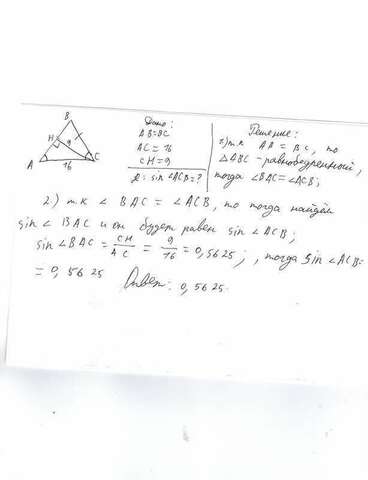 B
H
9
A
16
C
Дано:
AB=BC
AC = 16
CH = 9
sin ∠ACB = ?
Решение:
1) т.к AB = BC, то
△ABC - равнобедренный,
тогда ∠BAC=∠ACB;
2.) т.к ∠ BAC = ∠ACB, то тогда найдём
sin ∠ BAC и он будет равен sin ∠ ACB;
sin ∠BAC = CH/AC = 9/16 = 0,5625 ; , тогда sin ∠ACB=
= 0,5625 Ответ: 0,5625